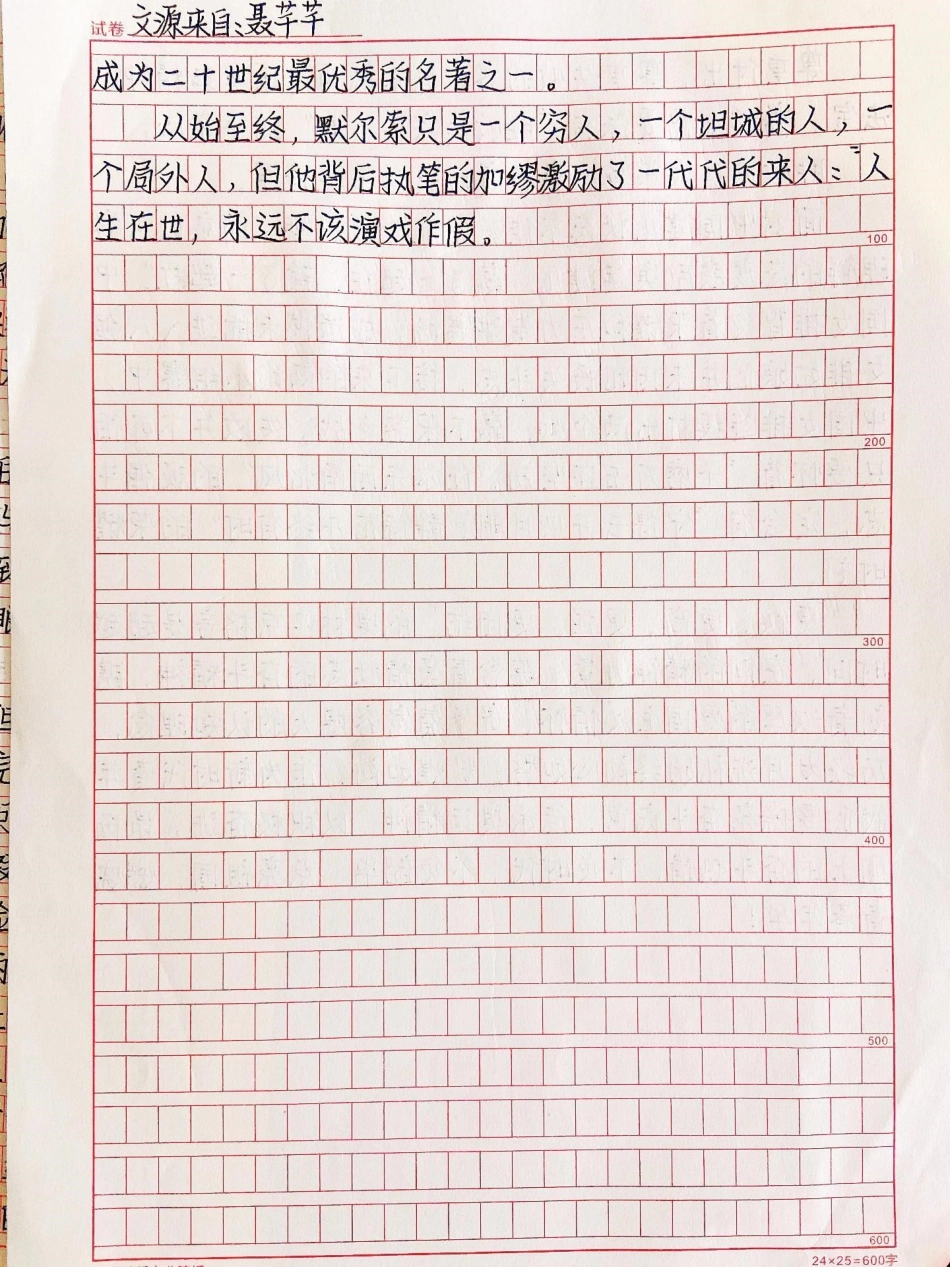 试卷 文源来自:聂芊芊
成为二十世纪最优秀的名著之一。
从始至终,默尔索只是一个穷人,一个坦城的人,一
个局外人,但他背后执笔的加缪激励了一代代的来人:"人
生在世,永远不该演戏作假。
100
200
300
400
500
600
24×25=600字